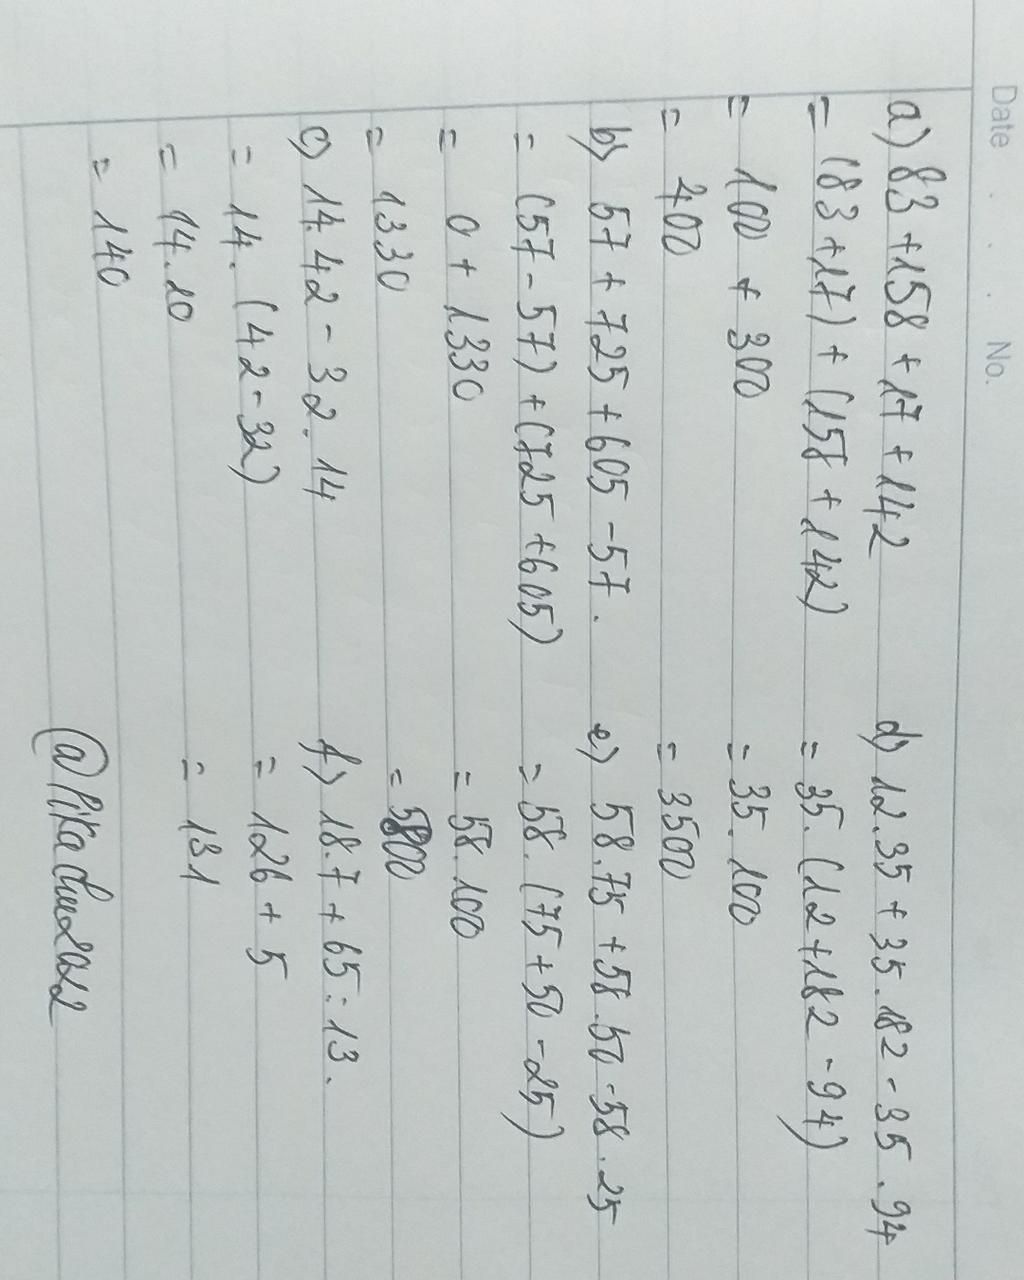 Date No.
a) 83 + 158 + 17 + 142
= (83 + 17) + (158 + 142)
= 100 + 300
= 400
b) 57 + 725 + 605 - 57.
= (57 - 57) + (725 + 605)
= 0 + 1330
= 1330
c) 14. 42 - 32. 14
= 14. (42 - 32)
= 14. 10
= 140
d) 12. 35 + 35. 182 - 35. 94
= 35. (12 + 182 - 94)
= 35. 100
= 3500
e) 58. 75 + 58. 50 - 58. 25
= 58. (75 + 50 - 25)
= 58. 100
= 5800
f) 18. 7 + 65 : 13.
= 126 + 5
= 131